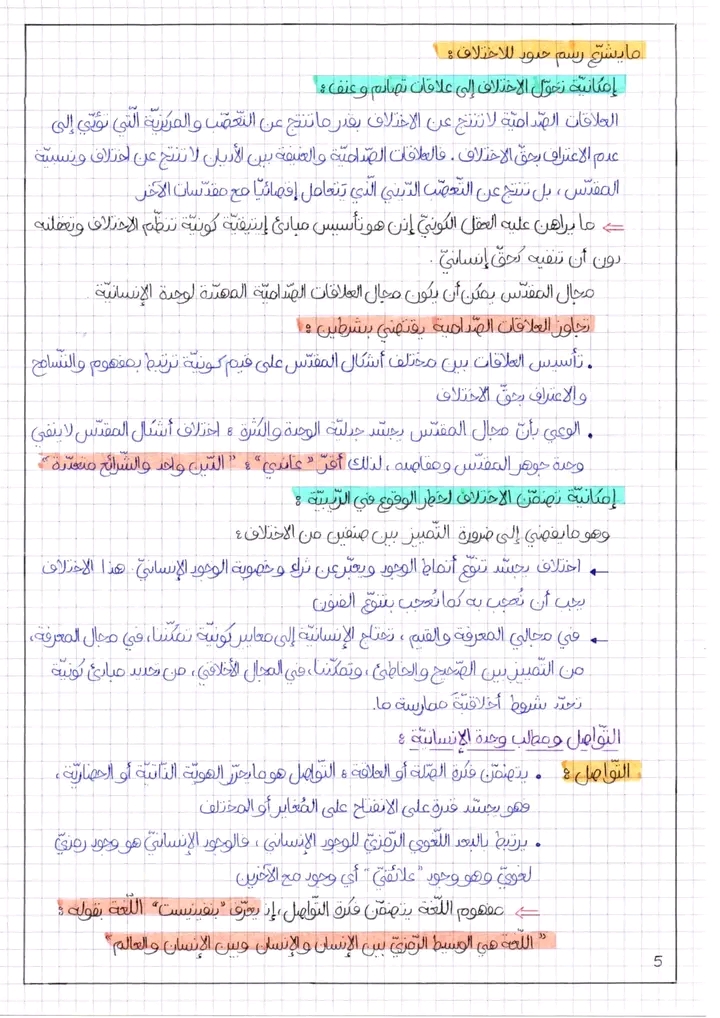 ما يشرّع رسم حدود للاختلاف :
إمكانيّة تحوّل الاختلاف إلى علاقات تصادم وعنف :
العلاقات الصّداميّة لا تنتج عن الاختلاف بقدر ما تنتج عن التّعصّب والمركزيّة الّتي تؤدّي إلى
عدم الاعتراف بحقّ الاختلاف . فالعلاقات الصّداميّة والعنيفة بين الأديان لا تنتج عن اختلاف ونسبيّة
المقدّس ، بل تنتج عن التّعصّب الدّيني الّذي يتعامل إقصائيّا مع مقدّسات الآخر
⇐ ما يراهن عليه العقل الكونيّ إذن هو تأسيس مبادئ إيتيقيّة كونيّة تنظّم الاختلاف وتعقلنه
دون أن تنفيه كحقّ إنسانيّ .
مجال المقدّس يمكن أن يكون مجال العلاقات الصّداميّة المهدّدة لوحدة الإنسانيّة
تجاوز العلاقات الصّدامية يقتضي بشرطين :
• تأسيس العلاقات بين مختلف أشكال المقدّس على قيم كونيّة ترتبط بمفهوم والتّسامح
والاعتراف بحقّ الاختلاف
• الوعي بأنّ مجال المقدّس يجسّد جدليّة الوحدة والكثرة : اختلاف أشكال المقدّس لا ينفي
وحدة جوهر المقدّس ومقاصده ، لذلك أقرّ "غاندي" : "الدّين واحد والشّرائح متعدّدة"
إمكانيّة تضمّن الاختلاف لخطر الوقوع في الرّيبيّة :
وهو ما يفضي إلى ضرورة التّمييز بين صنفين من الاختلاف :
← اختلاف يجسّد تنوّع أنماط الوجود ويعبّر عن ثراء وخصوبة الوجود الإنسانيّ . هذا الاختلاف
يجب أن نُعجب به كما نُعجب بتنوّع الفنون
← في مجالي المعرفة والقيم ، تحتاج الإنسانيّة إلى معايير كونيّة تمكّننا، في مجال المعرفة،
من التّمييز بين الصّحيح والخاطئ ، وتمكّننا، في المجال الأخلاقي ، من تحديد مبادئ كونيّة
تحدّد شروط أخلاقيّة ممارسة ما.
التّواصل ومطالب وحدة الإنسانيّة :
التّواصل : • يتضمّن فكرة الصّلة أو العلاقة : التّواصل هو ما يحرّر الهويّة الذّاتيّة أو الحضاريّة ،
فهو يجسّد قدرة على الانفتاح على المُغاير أو المختلف
• يرتبط بالبعد اللّغوي الرّمزيّ للوجود الإنساني ، فالوجود الإنسانيّ هو وجود رمزيّ
لغويّ وهو وجود "علائقيّ" أي وجود مع الآخرين
⇐ مفهوم اللّغة يتضمّن فكرة التّواصل ، إذ يعرّف "بنفينيست" اللّغة بقوله :
"اللّغة هي الوسيط الرّمزيّ بين الإنسان والإنسان وبين الإنسان والعالم"
5